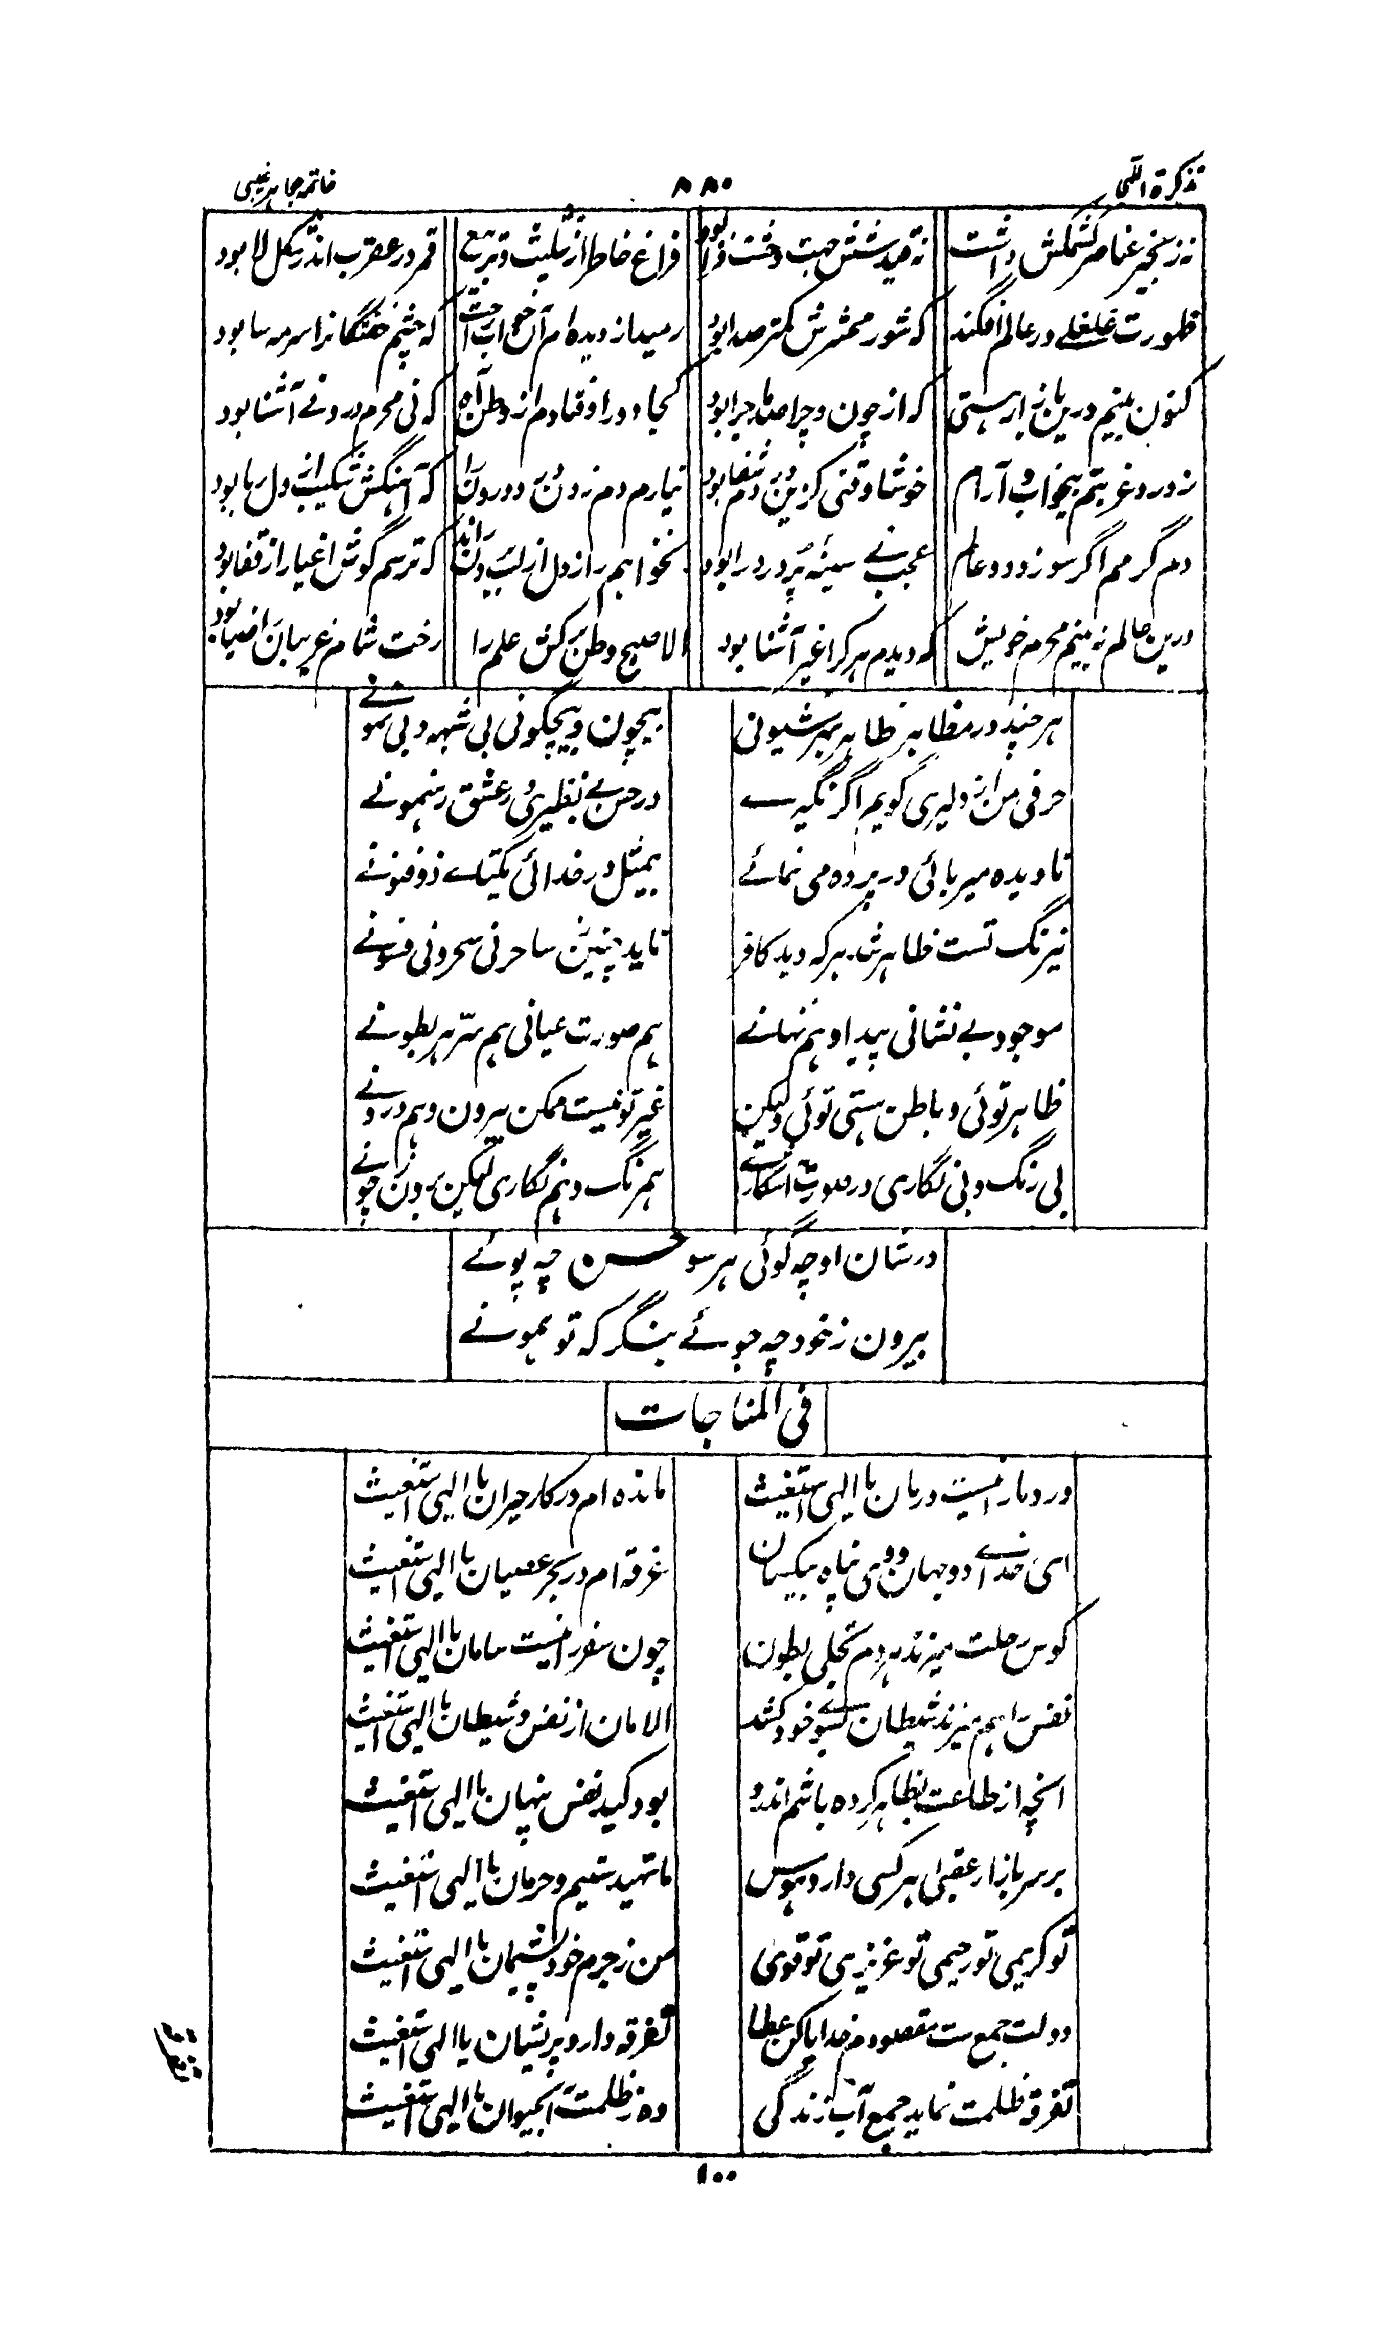 تذکرة اللبا ۸۸۰ خاتمه جابر غیبی
نه زنجیر عناصر کشمکش داشت نه قید شش جهت وحشت فزا بود فراغ خاطر از تثلیث و تربیع قمر در عقرب اندر شکل لا بود
ظهورت غلغلی در عالم افکند که شور محشرش کمتر صدا بود رمید از دیده ام آن خواب راحت که چشم خفتگانرا سرمه سا بود
کنون بینم درین بازار هستی که از چون و چرا صد ماجرا بود کجا دور اوفتادم از وطن آه که نی محرم درو نے آشنا بود
ز درد غربتم بیخواب و آرام خوشا وقتی کزین دردم شفا بود نیارم دم زدن زین درد دوران که آهنگش شکیب از دل ربا بود
دم گرمم اگر سوزد دو عالم عجب نے سینه پر درد را بود نخواهم راز دل از لب برون راند که ترسم گوش اغیار از قفا بود
درین عالم نه بینم محرم خویش که دیدم هر کرا غیر آشنا بود الا صبح وطن برکش علم را رخت شام غریبان را ضیا بود
هر چند در مظاهر ظاهر بهر شیونی بیچون و بیچگونی بی شبهه و بی نمونے
حرفی من از دلیری گویم اگر نگیرے در حسن بے نظیری در عشق رهنمونے
نادیده میربائی در پرده می نمائے بیمثل در خدائی یکتاے ذوفنونے
نیرنگ تست ظاهر شد هر که دید کافر ناید چنین ز ساحر نی سحر و نی فسونے
موجود بے نشانی پیدا و هم نهانے هم صورت عیانی هم سرّ هر بطونے
ظاهر توئی و باطن هستی توئی و لیکن غیر تو نیست ممکن بیرون و هم درونے
بی رنگ و بی نگاری در صورت آشکارے همرنگ و هم نگاری لیکن برون ز چونے
در شان او چه گوئی هر سو حسن چه پوئے
بیرون ز خود چه جوئے بنگر که تو همونے
فی المناجات
درد ما را نیست درمان یا الهی استغیث مانده ام در کار حیران یا الهی استغیث
ای خداے دو جهان و وی پناه بیکسان غرقه ام در بحر عصیان یا الهی استغیث
کوس رحلت میزند هر دم تجلی بطون چون سفر را نیست سامان یا الهی استغیث
نفس راهم میزند شیطان بسوے خود کشد الامان از نفس و شیطان یا الهی استغیث
آنچه از طاعت بظاهر کرده باشم اندرو بود کید نفس پنهان یا الهی استغیث
بر سر بازار عقبی هر کسی دارد هوس ما تهیدستیم و حرمان یا الهی استغیث
تو کریمی تو رحیمی تو عزیزی تو قوی من ز جرم خود پشیمان یا الهی استغیث
دولت جمع ست مقصودم خدایا کن عطا تفرقه دارد پریشان یا الهی استغیث
تفرقه ظلمت نماید جمع آب زندگی ده ز ظلمت آبحیوان یا الهی استغیث
تفرقه
۱۰۰